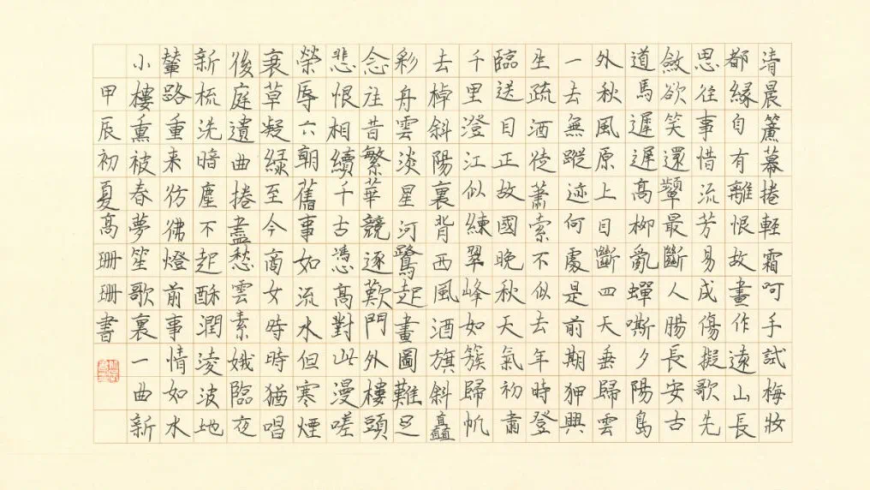 清晨簾幕捲輕霜呵手試梅妝
都緣自有離恨故畫作遠山長
思往事惜流芳易成傷擬歌先
斂欲笑還顰最斷人腸長安古
道馬遲遲高柳亂蟬嘶夕陽島
外秋風原上目斷四天垂歸雲
一去無蹤迹何處是前期狎興
生疏酒徒蕭索不似去年時登
臨送目正故國晚秋天氣初肅
千里澄江似練翠峰如簇歸帆
去棹斜陽裏背西風酒旗斜矗
彩舟雲淡星河鷺起畫圖難足
念往昔繁華競逐歎門外樓頭
悲恨相續千古憑高對此漫嗟
榮辱六朝舊事如流水但寒煙
衰草凝綠至今商女時時猶唱
後庭遺曲捲盡愁雲素娥臨夜
新梳洗暗塵不起酥潤淩波地
輦路重來彷彿燈前事情如水
小樓熏被春夢笙歌裏一曲新
甲辰初夏高珊珊書